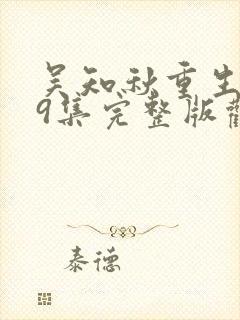 吴知秋重生
9集完整版
泰德